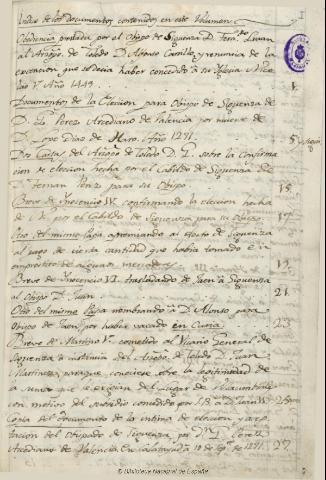 Indice de los documentos contenidos en este Volumen.
Obediencia prestada por el Obispo de Siguenza D. Fern.do Luxan
al Arzpo. de Toledo D. Alonso Carrillo, y renuncia de la
exencion que se decia haber concedido a su Iglesia Nico
lao V. Año 1449. 1.
Documentos de la eleccion para Obispo de Siguenza de
D. Perez Arcediano de Valencia por muerte de
D. Lope Diaz de Haro. Año 1271. 5
Dos Cartas del Arzpo. de Toledo D. G. sobre la confirma
cion de eleccion hecha por el Cabildo de Siguenza de
D. Fernan Perez para su Obispo 15.
Breve de Inocencio IV. confirmando la eleccion hecha
de por el Cabildo de Siguenza para su Obispo. 17.
Otro del mismo Papa apremiando al electo de Siguenza
al pago de cierta cantidad que habia tomado en
emprestito de algunos mercaderes 19.
Breve de Inocencio VI. trasladando de Jaen a Siguenza
al Obispo D. Juan 21.
Otro del mismo Papa nombrando a D. Alonso para
Obispo de Jaen, por haber vacado en Curia. 23.
Breve de Martino V. cometido al Vicario General de
Siguenza a instancia del Arzpo. de Toledo D. Juan
Martinez para que conociese sobre la legitimidad de
la suma que se exigian del Lugar de
con motivo del subsidio concedido por S.S. a D. Juan II. 25
Copia del documento de la intima de eleccion y acep
tacion del Obispado de Siguenza, por D.n G. Perez
Arcediano de Valencia. En Calatayud a 18 de Sep.e de 1271. 27.
Biblioteca Nacional de España